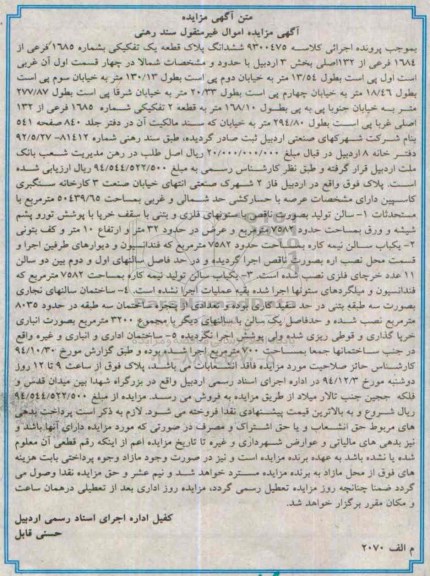 متن آگهی مزایده
آگهی مزایده اموال غیرمنقول سند رهنی
بموجب پرونده اجرائی کلاسه ۹۳۰۰۴۷۵ ششدانگ پلاک قطعه یک تفکیکی بشماره ۱۶۸۵ فرعی از
۱۶۸۴ فرعی از ۱۳۲اصلی بخش ۳ اردبیل با حدود و مشخصات شمالا در چهار قسمت اول آن غربی
است اول پی است بطول ۱۳/۵۴ متر به خیابان دوم پی است بطول ۱۳۰/۱۳ متر به خیابان سوم پی است
بطول ۱۸/۴۶ متر به خیابان چهارم پی است بطول ۲۰/۳۳ متر به خیابان شرقا پی است بطول ۲۷۷/۸۷
متر به خیابان جنوبا پی به پی بطول ۱۶۸/۱۰ متر به قطعه ۲ تفکیکی شماره ۱۶۸۵ فرعی از ۱۳۲
اصلی غربا پی است بطول ۲۹۴/۸۰ متر به خیابان که سند مالکیت آن در دفتر جلد ۸۴۰ صفحه ۵۴۱
بنام شرکت شهرکهای صنعتی اردبیل ثبت صادر گردیده، طبق سند رهنی شماره ۸۱۴۱۲-۹۲/۵/۲۷
دفتر خانه ۸ اردبیل در قبال مبلغ ۲۰/۰۰۰/۰۰۰/۰۰۰ ریال اصل طلب در رهن مدیریت شعب بانک
ملت اردبیل قرار گرفته و طبق نظر کارشناس رسمی به مبلغ ۹۴/۵۴۴/۵۲۲/۵۰۰ ریال ارزیابی شده
است. پلاک فوق واقع در اردبیل فاز ۲ شهرک صنعتی انتهای خیابان صنعت ۳ کارخانه سنگبری
کاسپین دارای مشخصات عرصه با حصارکشی حد شمالی و غربی بمساحت ۵۰۴۳۹/۶۵ مترمربع با
مستحدثات ۱- سالن تولید بصورت ناقص با ستونهای فلزی و بتنی با سقف خرپا با پوشش تورو پشم
شیشه و ورق بمساحت حدود ۷۵۸۲ مترمربع و عرض در حدود ۳۲ متر و ارتفاع ۱۰ متر و کف بتونی
۲- یکباب سالن نیمه کاره بمساحت حدود ۷۵۸۲ مترمربع که فندانسیون و دیوارهای طرفین اجرا و
قسمت محل نصب اره بصورت ناقص اجرا گردیده و در حد فاصل سالنهای اول و دوم بین دو سالن
۱۱ عدد خرپای فلزی نصب شده است. ۳- یکباب سالن تولید نیمه کاره بمساحت ۷۵۸۲ مترمربع که
فندانسیون و میلگردهای ستونها اجرا شده بقیه عملیات اجرا نشده است. ۴- ساختمان سالنهای نجاری
بصورت سه طبقه بتنی در حد سفید کاری بوده و تعدادی از پنجره ساختمان سه طبقه در حدود ۸۰۳۵
مترمربع نصب شده و حدفاصل یک سالن با سالنهای دیگر با مجموع ۳۲۰۰ مترمربع بصورت انباری
خرپا گذاری و قوطی ریزی شده ولی پوشش اجرا نگردیده ۵- ساختمان اداری و انباری و غیره واقع
در جنب ساختمانها جمعا بمساحت ۷۰۰ مترمربع اجرا شده بوده و طبق گزارش مورخ ۹۴/۱۰/۳۰
کارشناس حائز صلاحیت مورد مزایده فاقد انشعابات می باشد، پلاک فوق از ساعت ۹ تا ۱۲ روز
دوشنبه مورخ ۹۴/۱۲/۳ در اداره اجرای اسناد رسمی اردبیل واقع در بزرگراه شهدا بین میدان قدس و
فلکه ججین جنب تالار میلاد از طریق مزایده به فروش می رسد. مزایده از مبلغ ۹۴/۵۴۴/۵۲۲/۵۰۰
ریال شروع و به بالاترین قیمت پیشنهادی نقدا فروخته می شود. لازم به ذکر است پرداخت بدهی
های مربوط حق انشعاب و یا حق اشتراک و مصرف در صورتی که مورد مزایده دارای آنها باشد و
نیز بدهی های مالیاتی و عوارض شهرداری و غیره تا تاریخ مزایده اعم از اینکه رقم قطعی آن معلوم
شده یا نشده باشد به عهده برنده مزایده است و نیز در صورت وجود مازاد وجوه پرداختی بابت هزینه
های فوق از محل مازاد به برنده مزایده مسترد خواهد شد و نیم عشر و حق مزایده نقدا وصول می
گردد ضمنا چنانچه روز مزایده تعطیل رسمی گردد، مزایده روز اداری بعد از تعطیلی درهمان ساعت
و مکان مقرر برگزار خواهد شد.
کفیل اداره اجرای اسناد رسمی اردبیل
حسنی قابل
م الف ۲۰۷۰